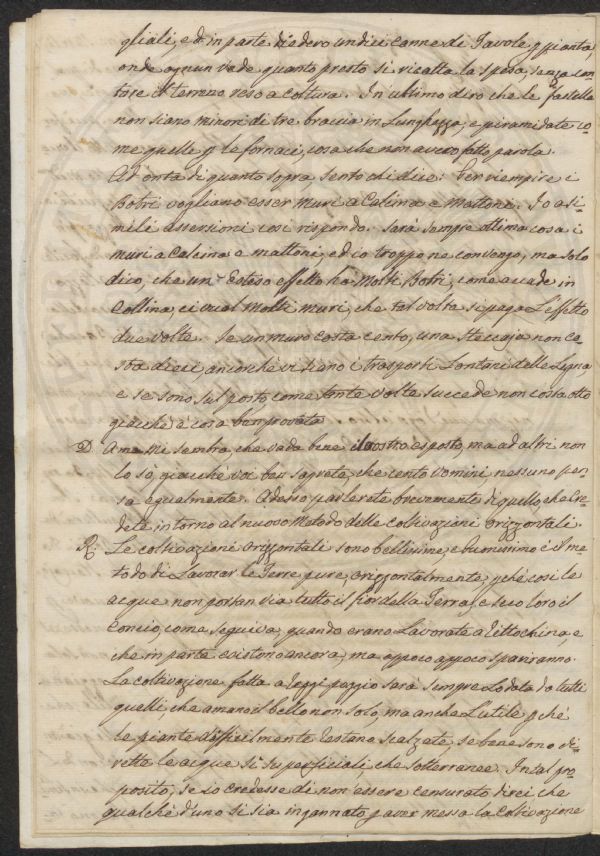 gliali, ed in parte diedero undici canne di Tavole p pianta,
onde ognun vede quanto presto si ricatta la spesa, senza con
tare il terreno reso a coltura. In ultimo dirò che le fastella
non siano minori di tre braccia in Lunghezza, e piramidate co=
me quelle p le fornaci, cosa che non avevo fatto parola.
Ad onta di quanto sopra, sento chi dice: Per riempire i
Botri vogliano esser muri a Calcina e mattoni. Io a si=
mili asserzioni così rispondo. Sarà sempre ottima cosa i
muri a Calcina e mattoni, ed io troppo ne convengo, ma solo
dico, che un Esteso effetto ha Molti Botri, come accade in
Collina, ci vuol Molti muri, che tal volta si paga L'effetto
due volte. Se un muro costa cento, una Steccaja non co=
sta dieci, ancorchè vi siano i trasporti Lontani delle Legna
e se sono sul posto, come tante volte succede non costa otto
giacchè è cosa ben provata.
D. A me mi sembra, che vada bene il vostro esposto, ma ad altri non
lo sò, giacchè voi ben sapete, che cento uomini, nessuno pen=
sa egualmente. Adesso parlerete brevemente di quello, che cre=
dete intorno al nuovo Metodo delle coltivazioni orizzontali.
R. Le coltivazioni orizzontali sono bellissime, e buonissimo è il me=
todo di Lavorar le Terre pure, orizzontalmente, pchè così le
acque non portan via tutto il fior della Terra, e seco loro il
Concio, come seguiva, quando erano Lavorate a rittochino, e
che in parte esistono ancora, ma appoco appoco spariranno.
La coltivazione fatta a leggi poggio sarà sempre Lodata da tutti
quelli, che amano il bello non solo, ma anche L'utile pchè
le piante difficilmente restano scalzate, se bene sono di=
rette le acque sì superficiali, che sotterranee. In tal pro=
posito, se io credesse di non essere censurato direi che
qualche d'uno si sia ingannato p aver messa la coltivazione